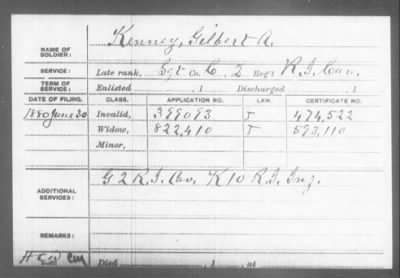 Kenney, Gilbert A.
NAME OF SOLDIER:
SERVICE: Late rank, Co. C, 2 Reg't R.I. Cav.
TERM OF SERVICE: Enlisted , 1 Discharged , 1
DATE OF FILING. CLASS. APPLICATION NO. LAW. CERTIFICATE NO.
1880 June 30 Invalid, 399093 J 474,522
Widow, 822,410 J 593,110
Minor,
ADDITIONAL SERVICES: G 2 R.I. Cav. K 10 R.I. Inf.
REMARKS:
Died , 1 , at